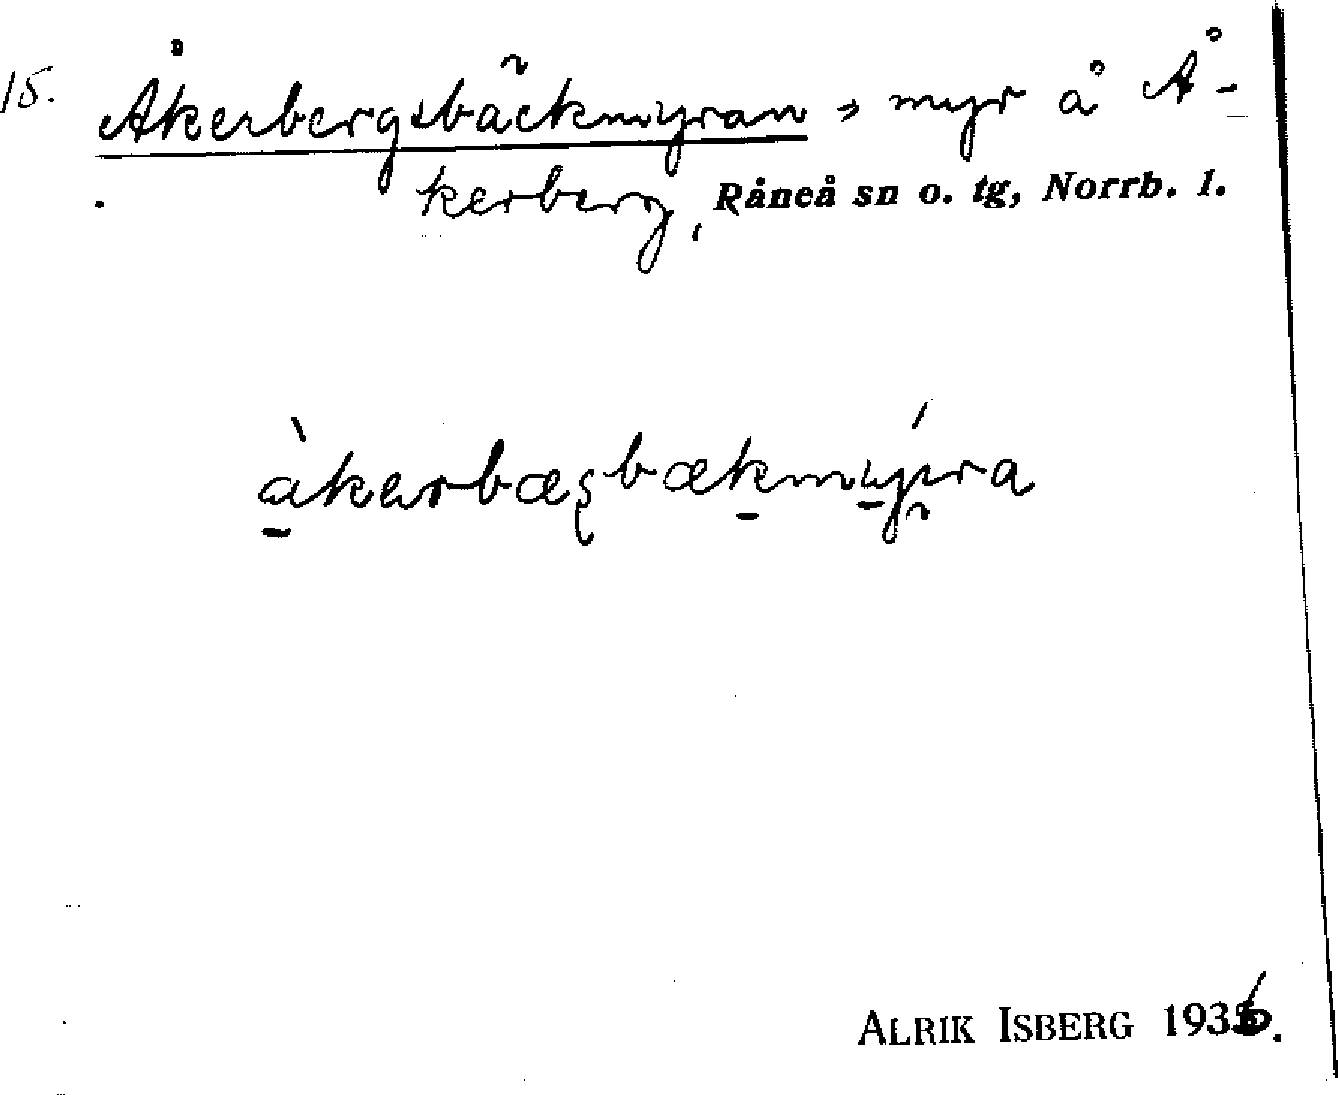 15. Åkerbergsbäckmyran, myr å Å-
kerberg, Råneå sn o. tg, Norrb. l.
àkerbæsbækmýra
ALRIK ISBERG 1936.